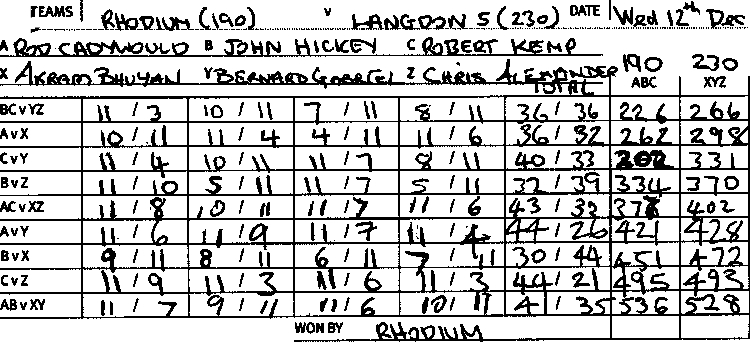 TEAMS RHODIUM (190) V LANGDON 5 (230) DATE Wed 12th Dec
A ROD CADYWOULD B JOHN HICKEY C ROBERT KEMP
X AKRAM BHUYAN Y BERNARD GABRIEL Z CHRIS ALEXANDER 190 230
TOTAL ABC XYZ
BCvYZ 11 / 3 10 / 11 7 / 11 8 / 11 36 / 36 226 266
AvX 10 / 11 11 / 4 4 / 11 11 / 6 36 / 32 262 298
CvY 11 / 4 10 / 11 11 / 7 8 / 11 40 / 33 331
BvZ 11 / 10 5 / 11 11 / 7 5 / 11 32 / 39 334 370
ACvXZ 11 / 8 10 / 11 11 / 7 11 / 6 43 / 32 402
AvY 11 / 6 11 / 9 11 / 7 11 / 4 44 / 26 421 428
BvX 9 / 11 8 / 11 6 / 11 7 / 11 30 / 44 451 472
CvZ 11 / 9 11 / 3 11 / 6 11 / 3 44 / 21 495 493
ABvXY 11 / 7 9 / 11 11 / 6 10 / 11 41 / 35 536 528
WON BY RHODIUM